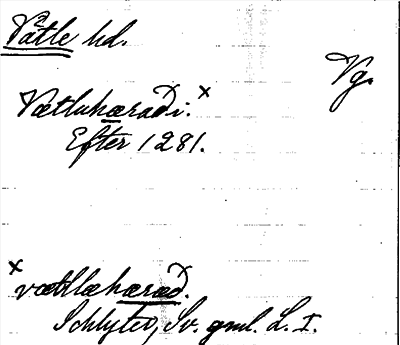 Vätle hd.
Vg.
Vætluhæradi. x
Efter 1281.
x
vætllæhæræd.
Schlyter, Sv. gml. L. I.